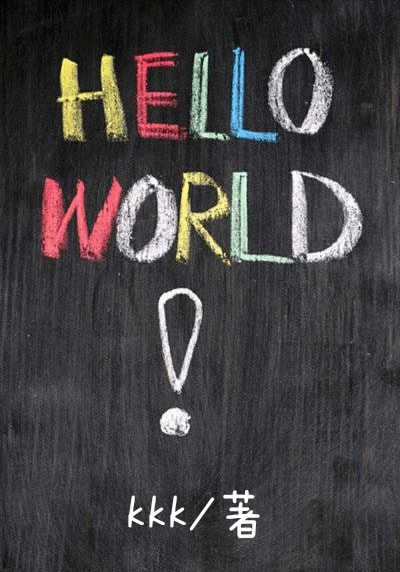 HELLO
WORLD
!
kkk/著